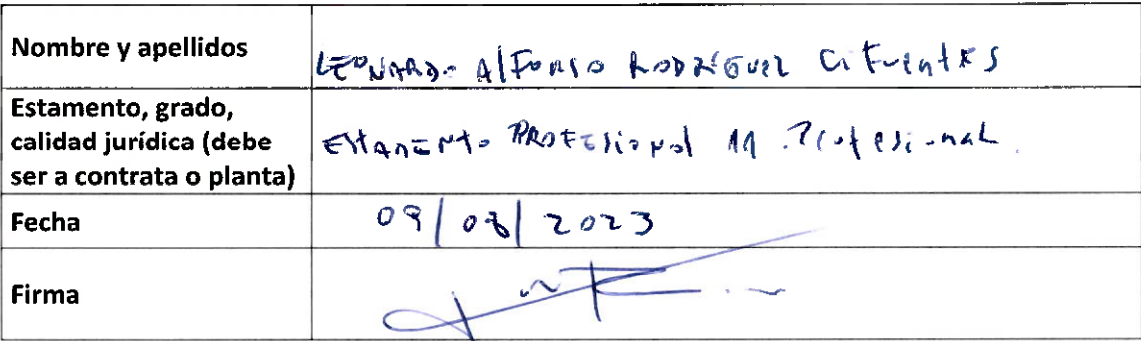 Nombre y apellidos
LEONARDO AlFONSO RODRÍGUEZ CiFuentES
Estamento, grado,
calidad jurídica (debe
ser a contrata o planta)
EStAmENtO PROFESional 11 Profesional.
Fecha
09/08/2023
Firma